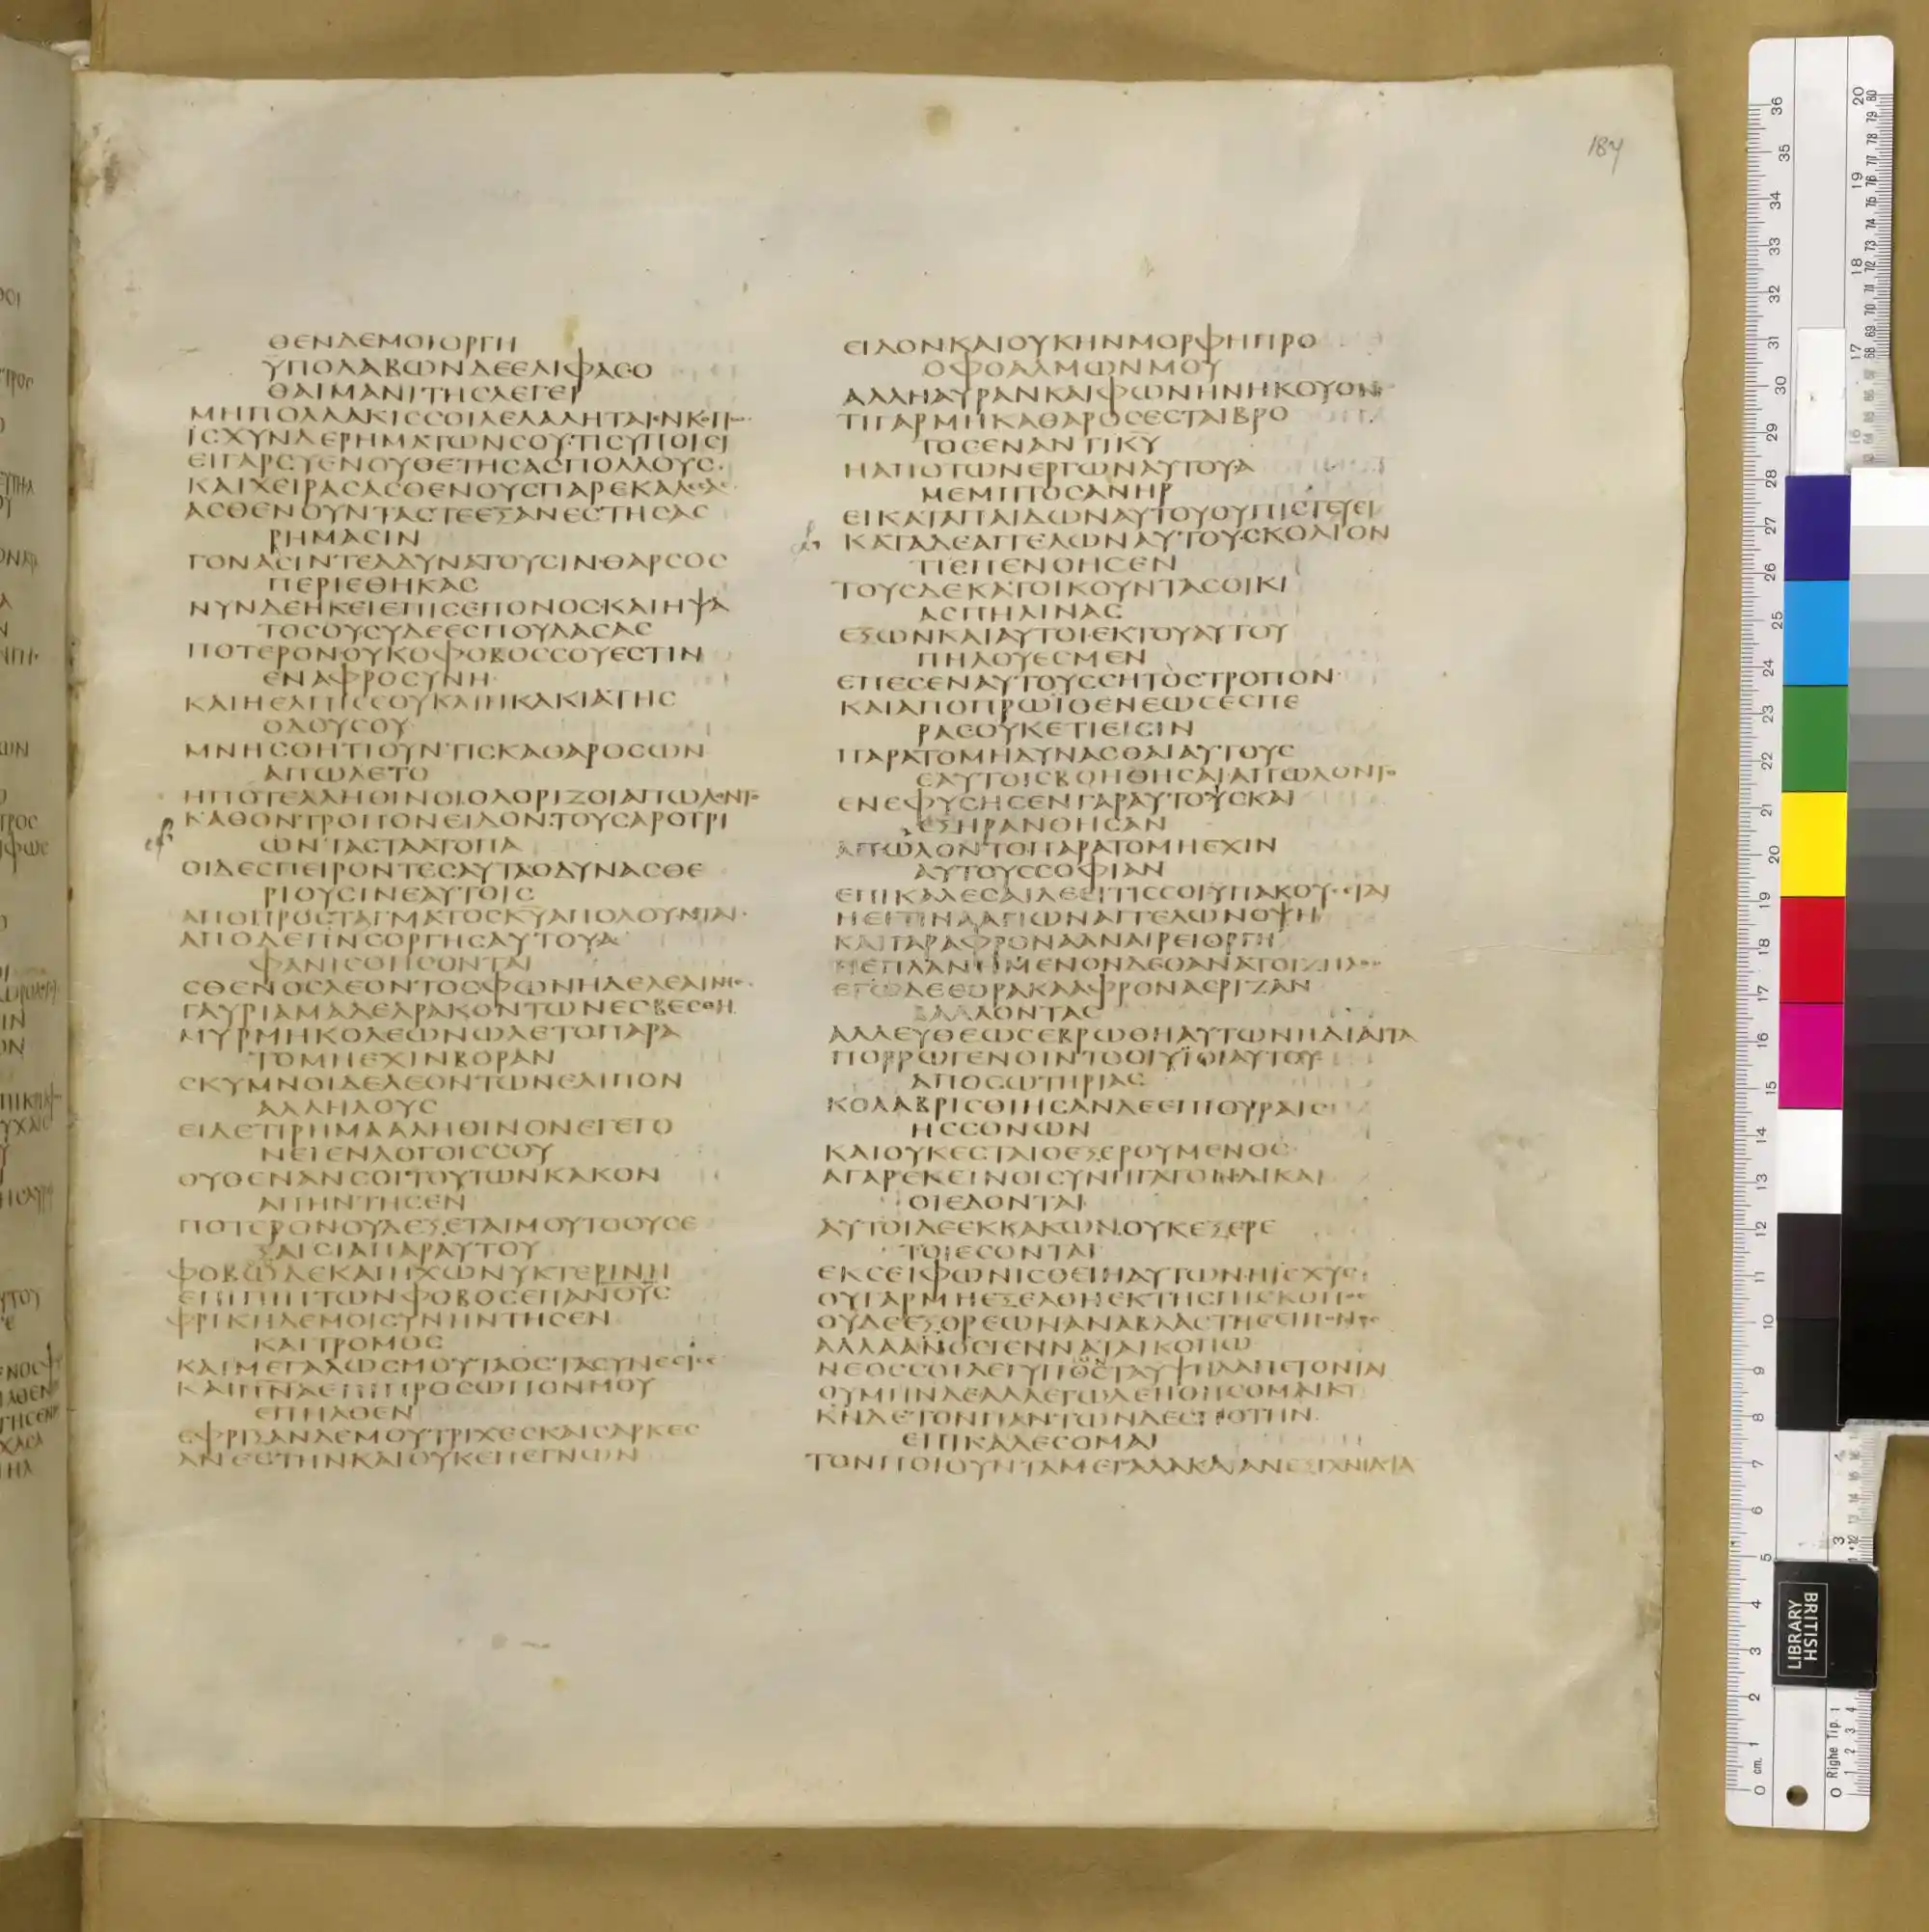 184
ΘΕΝΔΕΜΟΙΟΡΓΗ
ΫΠΟΛΑΒΩΝΔΕΕΛΙΦΑΣΟ
ΘΑΙΜΑΝΙΤΗΣΛΕΓΕΙ
ΜΗΠΟΛΛΑΚΙΣΣΟΙΛΕΛΑΛΗΤΑΙ
ΙΣΧΥΝΔΕΡΗΜΑΤΩΝΣΟΥΤΙΣΥΠΟΙΣΙ
ΕΙΓΑΡΣΥΕΝΟΥΘΕΤΗΣΑΣΠΟΛΛΟΥΣ
ΚΑΙΧΕΙΡΑΣΑΣΘΕΝΟΥΣΠΑΡΕΚΑΛΕΣΑΣ
ΑΣΘΕΝΟΥΝΤΑΣΤΕΕΞΑΝΕΣΤΗΣΑΣ
ΡΗΜΑΣΙΝ
ΓΟΝΑΣΙΝΤΕΑΔΥΝΑΤΟΥΣΙΝ·ΘΑΡΣΟΣ
ΠΕΡΙΕΘΗΚΑΣ
ΝΥΝΔΕΗΚΕΙΕΠΙΣΕΠΟΝΟΣΚΑΙΗΨΑ
ΤΟΣΟΥΣΥΔΕΕΣΠΟΥΔΑΣΑΣ
ΠΟΤΕΡΟΝΟΥΚΟΦΟΒΟΣΣΟΥΕΣΤΙΝ
ΕΝΑΦΡΟΣΥΝΗ
ΚΑΙΗΕΛΠΙΣΣΟΥΚΑΙΗΚΑΚΙΑΤΗΣ
ΟΔΟΥΣΟΥ
ΜΝΗΣΘΗΤΙΟΥΝΤΙΣΚΑΘΑΡΟΣΩΝ
ΑΠΩΛΕΤΟ
ΗΠΟΤΕΑΛΗΘΙΝΟΙΟΛΟΡΙΖΟΙΑΠΩΛΟΝΤΟ
ΚΑΘΟΝΤΡΟΠΟΝΕΙΔΟΝΤΟΥΣΑΡΟΤΡΙ
ΩΝΤΑΣΤΑΑΤΟΠΑ
ΟΙΔΕΣΠΕΙΡΟΝΤΕΣΑΥΤΑΟΔΥΝΑΣΘΕ
ΡΙΟΥΣΙΝΕΑΥΤΟΙΣ
ΑΠΟΠΡΟΣΤΑΓΜΑΤΟΣΚΥΑΠΟΛΟΥΝΤΑΙ
ΑΠΟΔΕΠΝΣΟΡΓΗΣΑΥΤΟΥΑ
ΦΑΝΙΣΘΗΣΟΝΤΑΙ
ΣΘΕΝΟΣΛΕΟΝΤΟΣΦΩΝΗΔΕΛΕΑΙΝΗΣ
ΓΑΥΡΙΑΜΑΔΕΔΡΑΚΟΝΤΩΝΕΣΒΕΣΘΗ
ΜΥΡΜΗΚΟΛΕΩΝΩΛΕΤΟΠΑΡΑ
ΤΟΜΗΕΧΙΝΒΟΡΑΝ
ΣΚΥΜΝΟΙΔΕΛΕΟΝΤΩΝΕΛΙΠΟΝ
ΑΛΛΗΛΟΥΣ
ΕΙΔΕΤΙΡΗΜΑΑΛΗΘΙΝΟΝΕΓΕΓΟ
ΝΕΙΕΝΛΟΓΟΙΣΣΟΥ
ΟΥΘΕΝΑΝΣΟΙΤΟΥΤΩΝΚΑΚΟΝ
ΑΠΗΝΤΗΣΕΝ
ΠΟΤΕΡΟΝΟΥΔΕΞΕΤΑΙΜΟΥΤΟΟΥΣΕ
ΞΑΙΣΙΑΠΑΡΑΥΤΟΥ
ΦΟΒΩΔΕΚΑΙΗΧΩΝΥΚΤΕΡΙΝΗ
ΕΠΙΠΙΠΤΩΝΦΟΒΟΣΕΠΑΝΟΥΣ
ΦΡΙΚΗΔΕΜΟΙΣΥΝΗΝΤΗΣΕΝ
ΚΑΙΤΡΟΜΟΣ
ΚΑΙΜΕΓΑΛΩΣΜΟΥΤΑΟΣΤΑΣΥΝΕΣΙΣΕ
ΚΑΙΠΝΑΕΠΙΠΡΟΣΩΠΟΝΜΟΥ
ΕΠΗΛΘΕΝ
ΕΦΡΙΞΑΝΔΕΜΟΥΤΡΙΧΕΣΚΑΙΣΑΡΚΕΣ
ΑΝΕΣΤΗΝΚΑΙΟΥΚΕΠΕΓΝΩΝ
ΕΙΔΟΝΚΑΙΟΥΚΗΝΜΟΡΦΗΠΡΟ
ΟΦΘΑΛΜΩΝΜΟΥ
ΑΛΛΗΑΥΡΑΝΚΑΙΦΩΝΗΝΗΚΟΥΟΝ
ΤΙΓΑΡΜΗΚΑΘΑΡΟΣΕΣΤΑΙΒΡΟ
ΤΟΣΕΝΑΝΤΙΚΥ
ΗΑΠΟΤΩΝΕΡΓΩΝΑΥΤΟΥΑ
ΜΕΜΠΤΟΣΑΝΗΡ
ΕΙΚΑΤΑΠΑΙΔΩΝΑΥΤΟΥΟΥΠΙΣΤΕΥΕΙ
ΚΑΤΑΔΕΑΓΓΕΛΩΝΑΥΤΟΥΣΚΟΛΙΟΝ
ΤΙΕΠΕΝΟΗΣΕΝ
ΤΟΥΣΔΕΚΑΤΟΙΚΟΥΝΤΑΣΟΙΚΙ
ΑΣΠΗΛΙΝΑΣ
ΕΞΩΝΚΑΙΑΥΤΟΙΕΚΤΟΥΑΥΤΟΥ
ΠΗΛΟΥΕΣΜΕΝ
ΕΠΕΣΕΝΑΥΤΟΥΣΣΗΤΟΣΤΡΟΠΟΝ
ΚΑΙΑΠΟΠΡΩΪΘΕΝΕΩΣΕΣΠΕ
ΡΑΣΟΥΚΕΤΙΕΙΣΙΝ
ΠΑΡΑΤΟΜΗΔΥΝΑΣΘΑΙΑΥΤΟΥΣ
ΕΑΥΤΟΙΣΒΟΗΘΗΣΑΙΑΠΩΛΟΝΤΟ
ΕΝΕΦΥΣΗΣΕΝΓΑΡΑΥΤΟΥΣΚΑΙ
ΕΞΗΡΑΝΘΗΣΑΝ
ΑΠΩΛΟΝΤΟΠΑΡΑΤΟΜΗΕΧΙΝ
ΑΥΤΟΥΣΣΟΦΙΑΝ
ΕΠΙΚΑΛΕΣΑΙΔΕΕΙΤΙΣΣΟΙΫΠΑΚΟΥΣΕΤΑΙ
ΗΕΙΤΙΝΑΑΓΙΩΝΑΓΓΕΛΩΝΟΨΗ
ΚΑΙΓΑΡΑΦΡΟΝΑΑΝΑΙΡΕΙΟΡΓΗ
ΠΕΠΛΑΝΗΜΕΝΟΝΔΕΘΑΝΑΤΟΙΖΗΛΟΣ
ΕΓΩΔΕΕΟΡΑΚΑΑΦΡΟΝΑΣΡΙΖΑΝ
ΒΑΛΛΟΝΤΑΣ
ΑΛΛΕΥΘΕΩΣΕΒΡΩΘΗΑΥΤΩΝΗΔΙΑΙΤΑ
ΠΟΡΡΩΓΕΝΟΙΝΤΟΟΙΥΪΟΙΑΥΤΟΥ
ΑΠΟΣΩΤΗΡΙΑΣ
ΚΟΛΑΒΡΙΣΘΙΗΣΑΝΔΕΕΠΙΘΥΡΑΙΣ
ΗΣΣΟΝΩΝ
ΚΑΙΟΥΚΕΣΤΑΙΟΕΞΕΡΟΥΜΕΝΟΣ
ΑΓΑΡΕΚΕΙΝΟΙΣΥΝΗΓΑΓΟΝΔΙΚΑΙ
ΟΙΕΔΟΝΤΑΙ
ΑΥΤΟΙΔΕΕΚΚΑΚΩΝΟΥΚΕΞΕΡΕ
ΤΟΙΕΣΟΝΤΑΙ
ΕΚΣΕΙΦΩΝΙΣΘΕΙΗΑΥΤΩΝΗΙΣΧΥΣ
ΟΥΓΑΡΜΗΕΞΕΛΘΗΕΚΤΗΣΓΗΣΚΟΠΟΣ
ΟΥΔΕΕΞΟΡΕΩΝΑΝΑΒΛΑΣΤΗΣΕΙΠΟΝΟΣ
ΑΛΛΑΑΝΟΣΓΕΝΝΑΤΑΙΚΟΠΩ
ΝΕΟΣΣΟΙΔΕΓΥΠΟΣΤΑΥΨΗΛΑΠΕΤΟΝΤΑΙ
ΟΥΜΗΝΔΕΑΛΛΕΓΩΔΕΗΘΗΣΟΜΑΙΚΥ
ΚΝΔΕΤΟΝΠΑΝΤΩΝΔΕΣΠΟΤΗΝ
ΕΠΙΚΑΛΕΣΟΜΑΙ
ΤΟΝΠΟΙΟΥΝΤΑΜΕΓΑΛΑΚΑΙΑΝΕΞΙΧΝΙΑΣΤΑ
BRITISH
LIBRARY